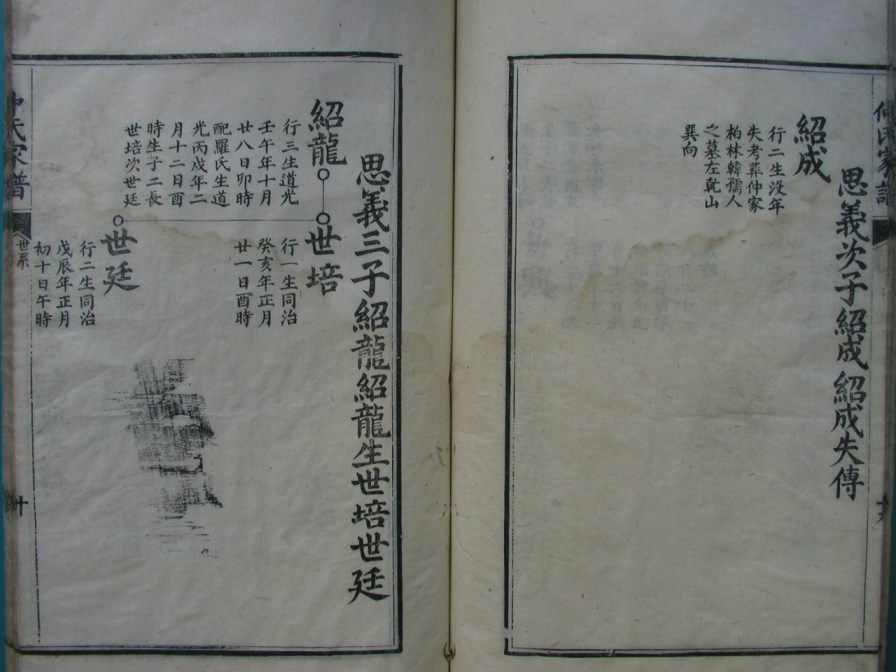 思義次子紹成紹成失傳
紹成
行二生沒年
失考葬仲家
柏林韓孺人
之墓左乾山
巽向
思義三子紹龍紹龍生世培世廷
紹龍
行三生道光
壬午年十月
廿八日卯時
配羅氏生道
光丙戌年二
月十二日酉
時生子二長
世培次世廷
世培
行一生同治
癸亥年正月
廿一日酉時
世廷
行二生同治
戊辰年正月
初十日午時
仲氏家譜
世系